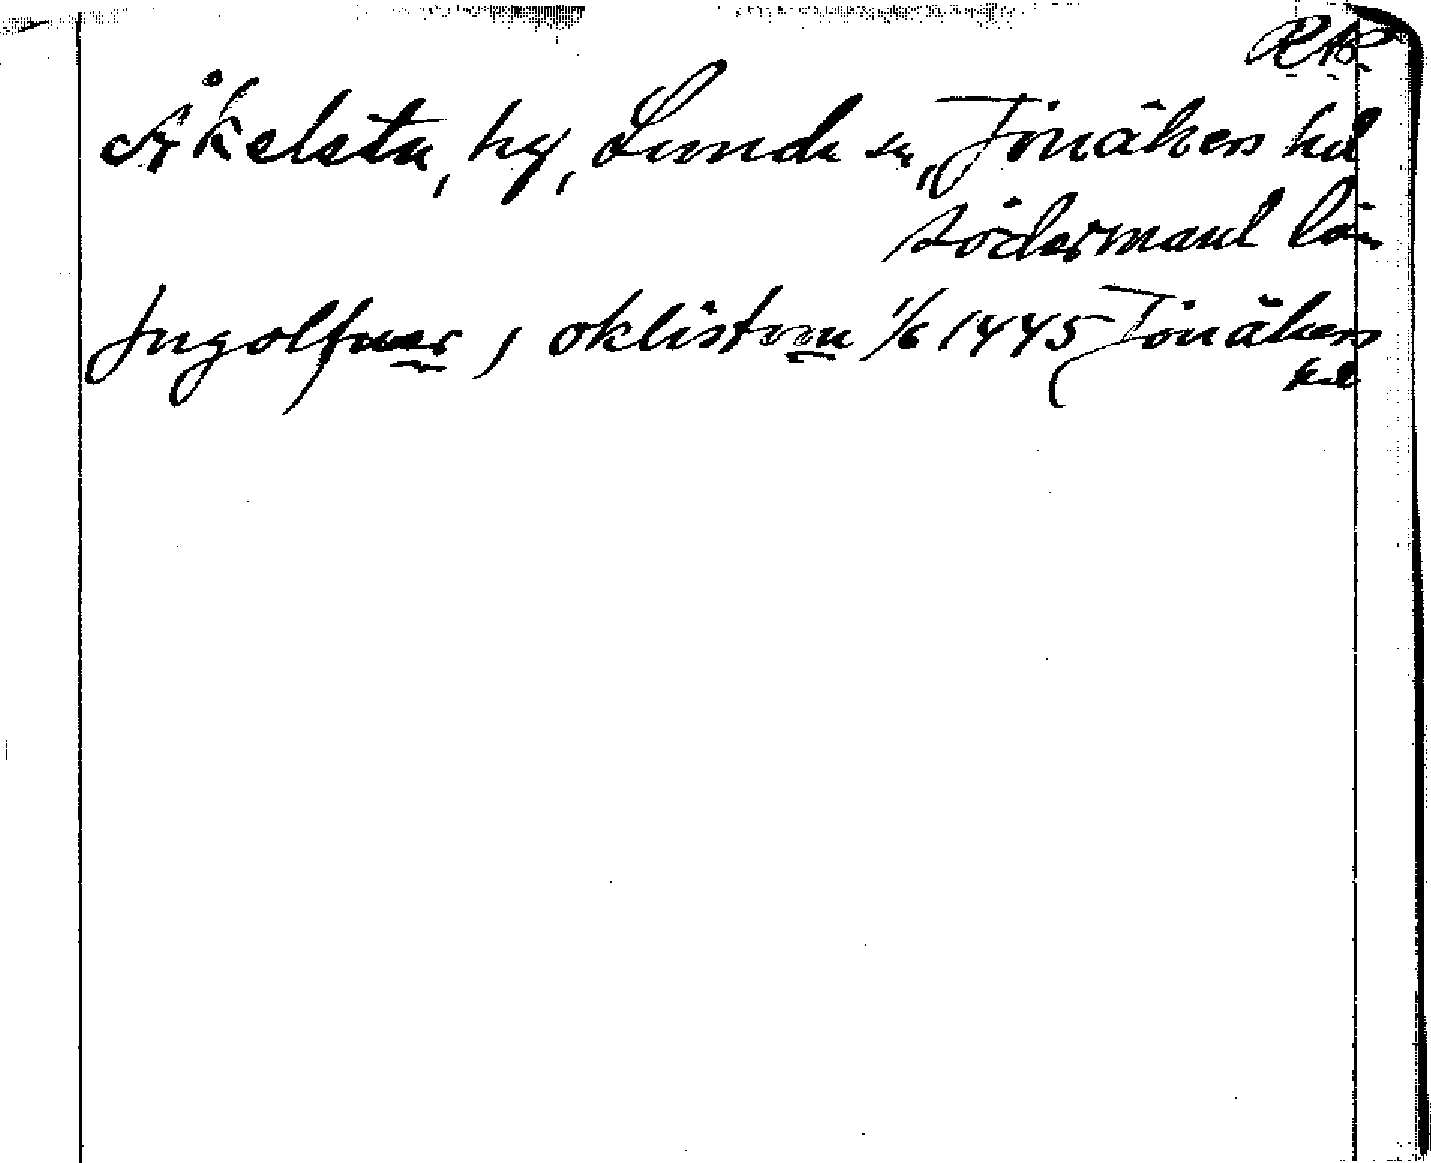 Åkelsta, by, Lunda sn, Jönåkers hd
Södermanl län
Ingolfuær j oklistom 1/6 1445 (Jönåkers
hd